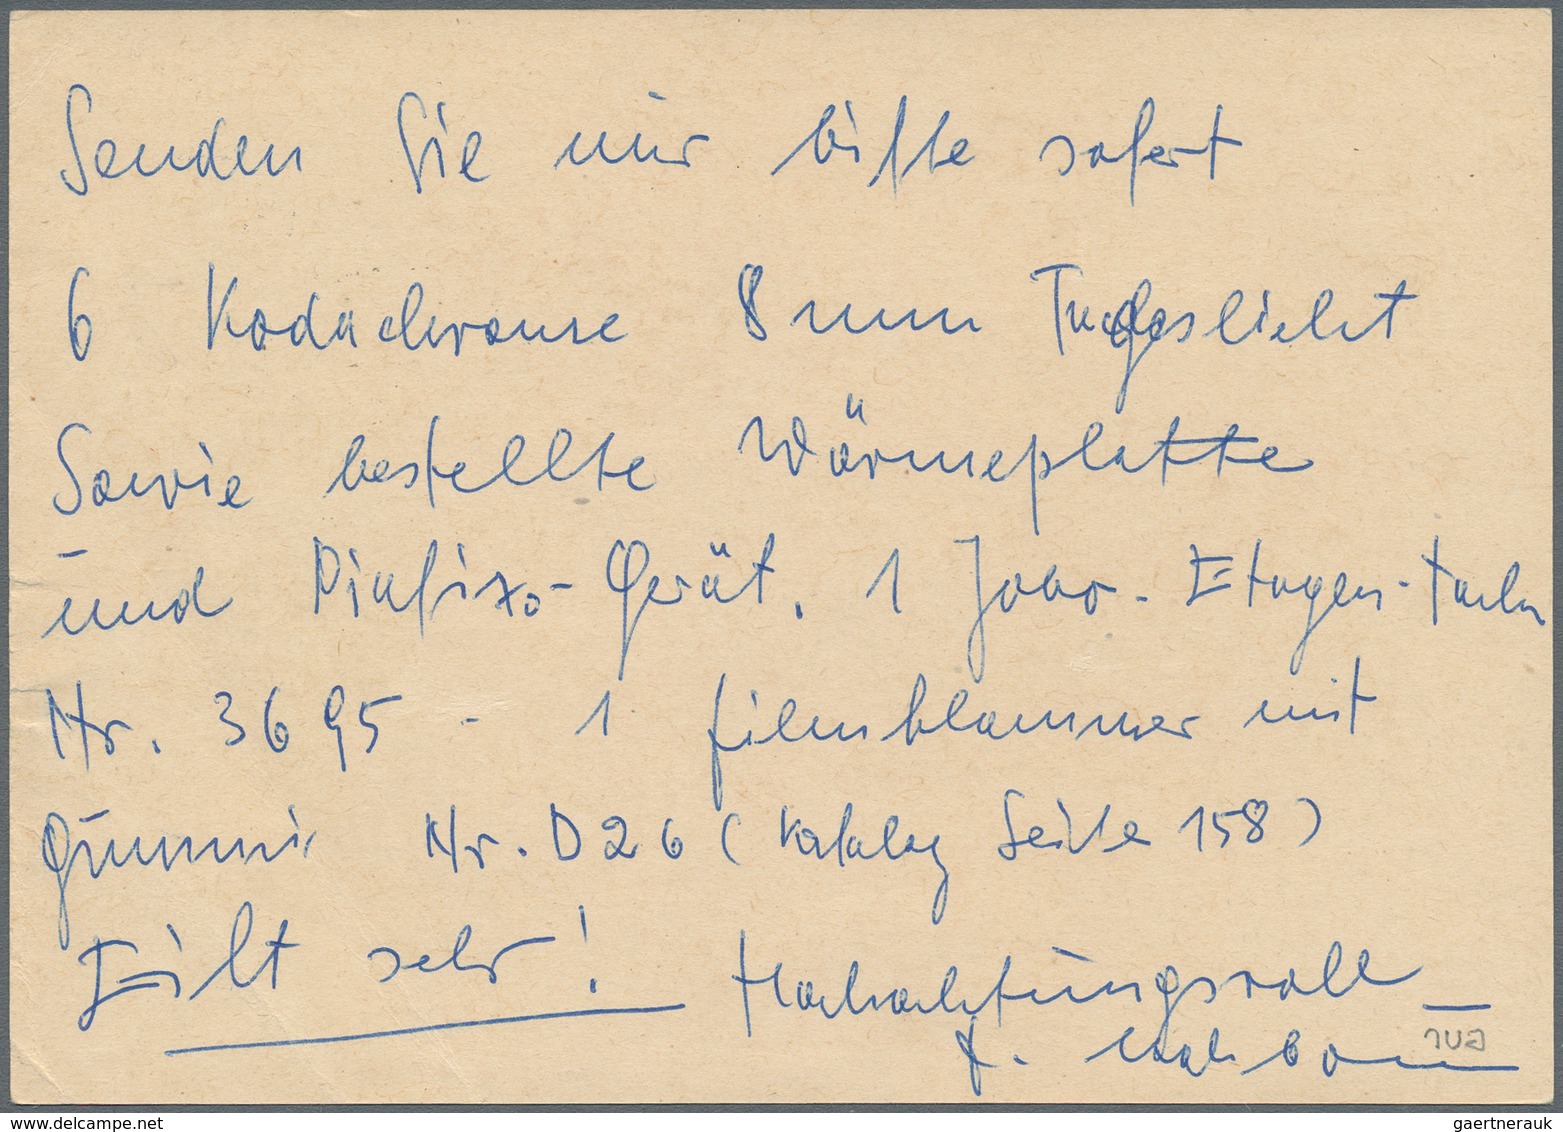 Senden Sie mir bitte sofort
6 Kodachrome 8 mm Tageslicht
Sowie bestellte Wärmeplatte
und Diafixo-Gerät. 1 Jobo-Etagen-
Nr. 3695 - 1 Filmklammer mit
Gummi Nr. D26 (Katalog Seite 158)
Eilt sehr! Hochachtungsvoll
gaertnerauk